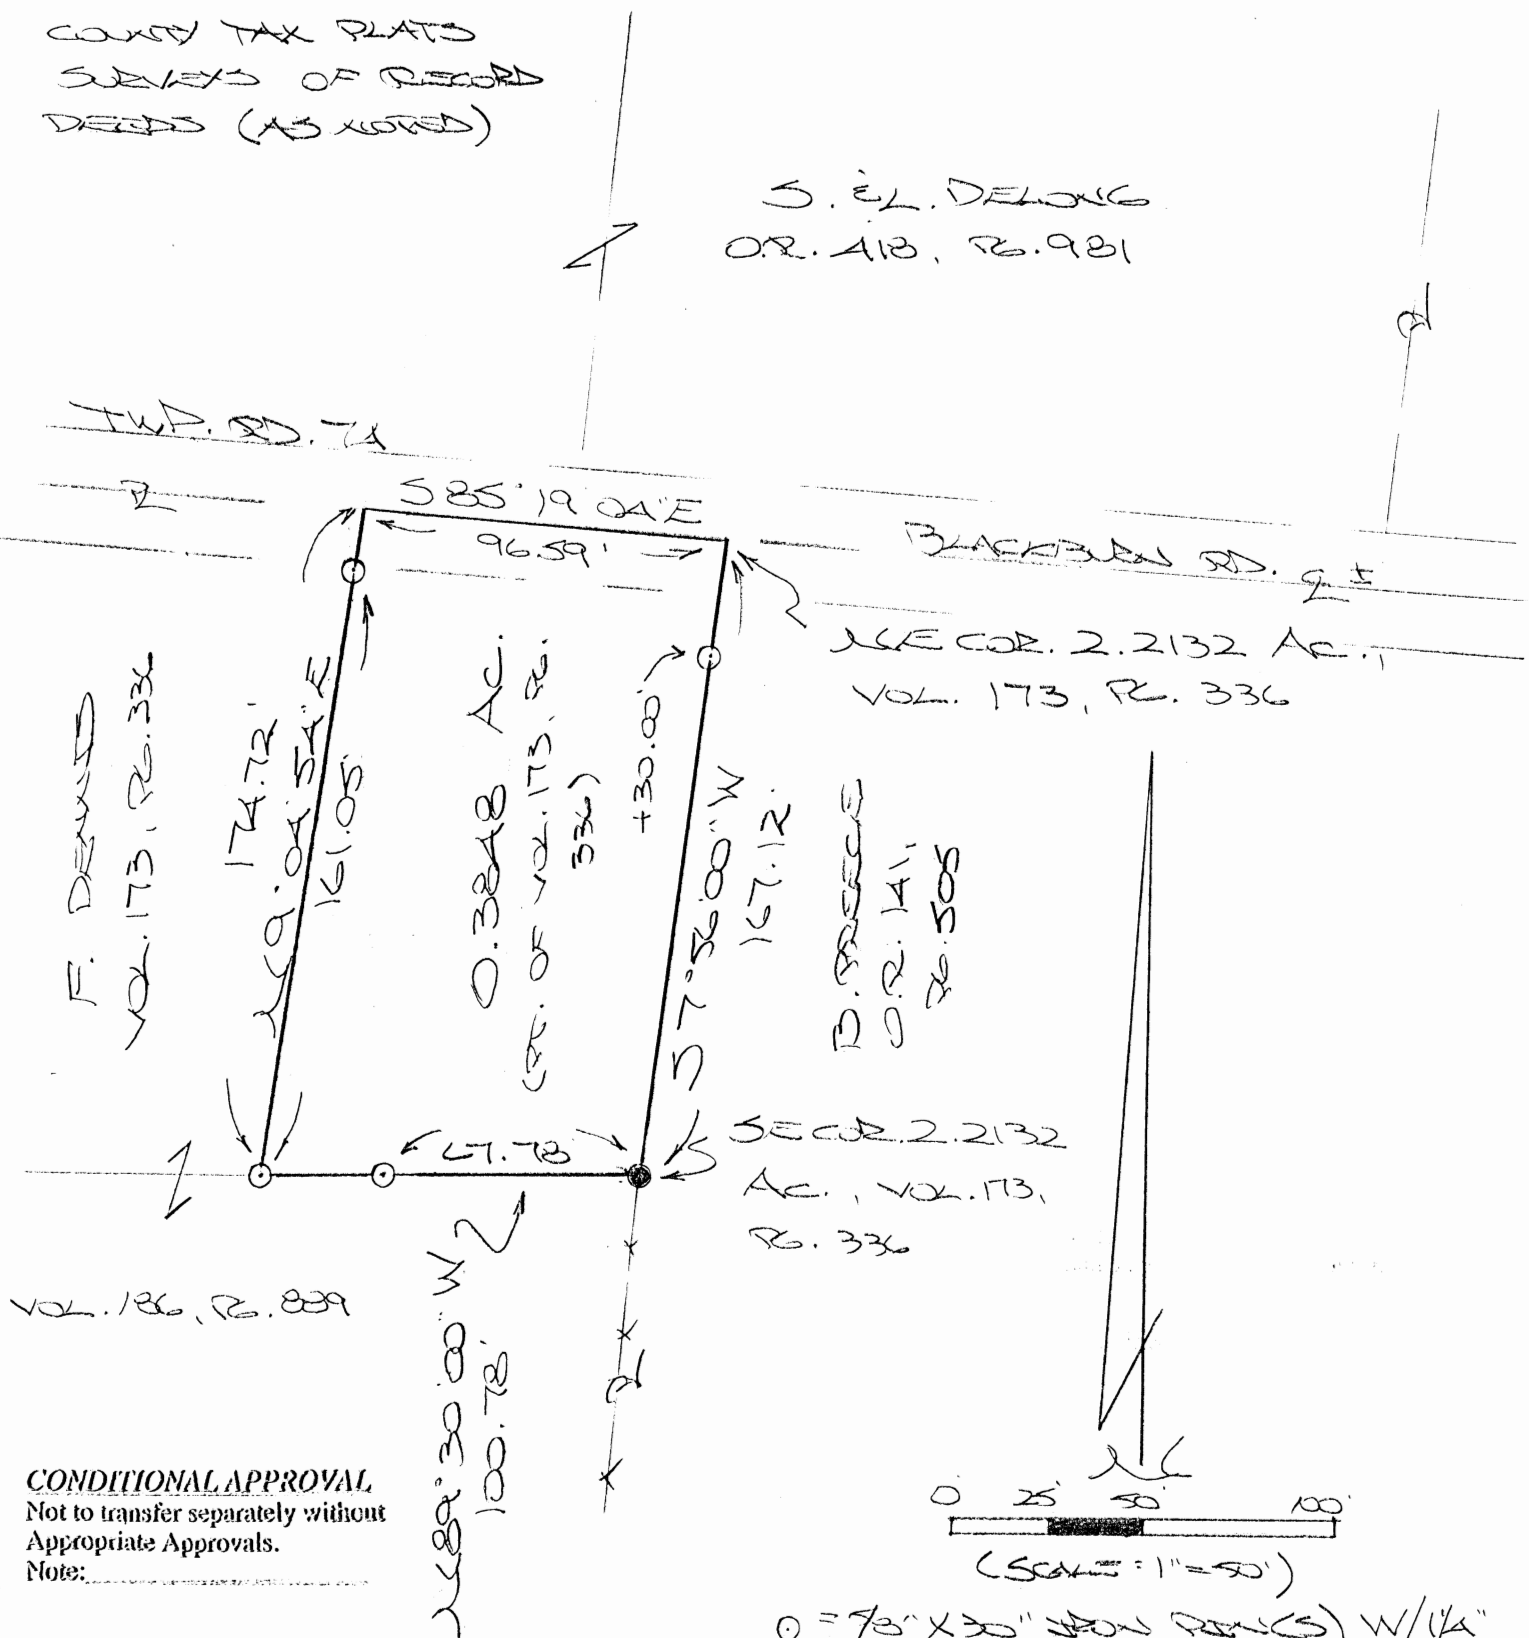 COUNTY TAX PLATS
SURVEYS OF RECORD
DEEDS (AS NOTED)
S. & L. DELONG
O.R. 418, PG. 981
TWP. RD. 74
S 85° 19' 04" E
96.59'
BLACKBURN RD. ±
NE COR. 2.2132 AC.,
VOL. 173, PG. 336
F. DENNIS
VOL. 173, PG. 336
174.72'
N 9° 04' 54" E
161.05'
0.3848 AC.
(PT. OF VOL. 173, PG.
336)
+30.00'
S 7° 56' 00" W
167.12'
B. PREECE
O.R. 141,
PG. 505
67.78'
SE COR. 2.2132
AC., VOL. 173,
PG. 336
N 89° 30' 00" W
100.78'
VOL. 186, PG. 889
CONDITIONAL APPROVAL
Not to transfer separately without
Appropriate Approvals.
Note:
N
0 25' 50' 100'
(SCALE: 1" = 50')
= 5/8" X 30" IRON PIN(S) W/ 1¼"